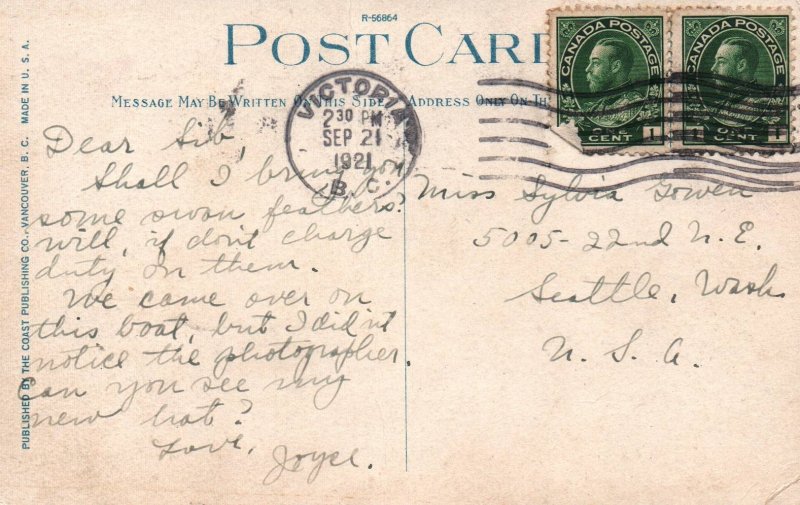 R-56864
POST CARD
MESSAGE MAY BE WRITTEN ON THIS SIDE
ADDRESS ONLY ON TH
VICTORIA
2 30 PM
SEP 21
1921
B. C.
CANADA POSTAGE
CENT 1
CANADA POSTAGE
1 CENT 1
Dear Sib,
Shall I bring you
some swan feathers?
will, if don't charge
duty on them.
We came over on
this boat, but I didn't
notice the photographer.
Can you see my
new hat?
Love,
Joyce.
Miss Sylvia Gowen
5005-22nd N.E.
Seattle, Wash.
U.S.A.
PUBLISHED BY THE COAST PUBLISHING CO., VANCOUVER, B. C. MADE IN U. S. A.